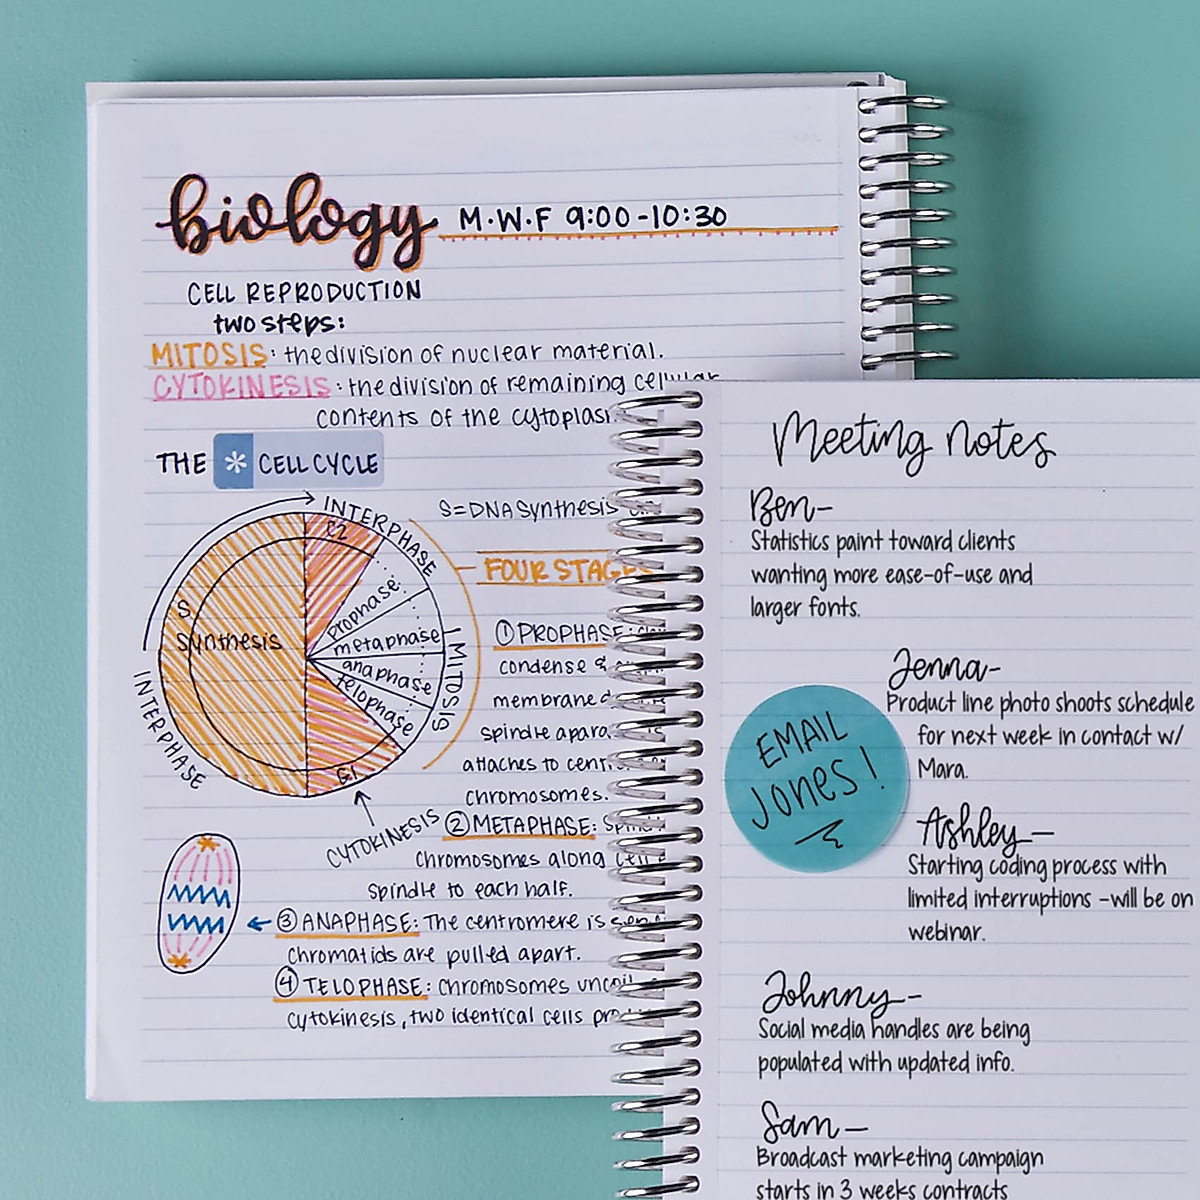 biology M·W·F 9:00-10:30
CELL REPRODUCTION
two steps:
MITOSIS: the division of nuclear material.
CYTOKINESIS: the division of remaining cellular
contents of the cytoplas
THE * CELL CYCLE
INTERPHASE
G2
S
Synthesis
prophase
metaphase
anaphase
telophase
MITOSIS
G1
INTERPHASE
CYTOKINESIS
S=DNA Synthesis
FOUR STAGES
① PROPHASE:
condense &
membrane d
spindle apara
attaches to cent
chromosomes.
② METAPHASE:
chromosomes along cell
spindle to each half.
③ ANAPHASE: The centromere is
chromatids are pulled apart.
④ TELOPHASE: chromosomes uncoil
cytokinesis, two identical cells pr
Meeting notes
Ben-
Statistics paint toward clients
wanting more ease-of-use and
larger fonts.
Jenna-
Product line photo shoots schedule
for next week in contact w/
Mara.
EMAIL
JONES!
Ashley-
Starting coding process with
limited interruptions -will be on
webinar.
Johnny-
Social media handles are being
populated with updated info.
Sam-
Broadcast marketing campaign
starts in 3 weeks contracts